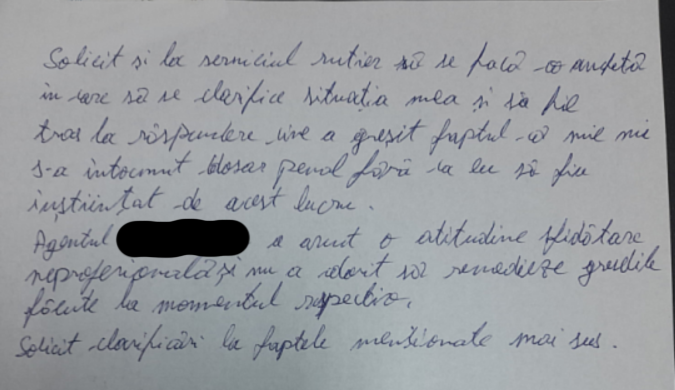 Solicit și la serviciul rutier să se facă o anchetă
în care să se clarifice situația mea și să fie
tras la răspundere cine a greșit faptul că mie mi
s-a întocmit dosar penal fără ca eu să fiu
înștiințat de acest lucru.
Agentul a avut o atitudine sfidătoare
neprofesională și nu a dorit să remedieze greșelile
făcute la momentul respectiv.
Solicit clarificări la faptele menționate mai sus.